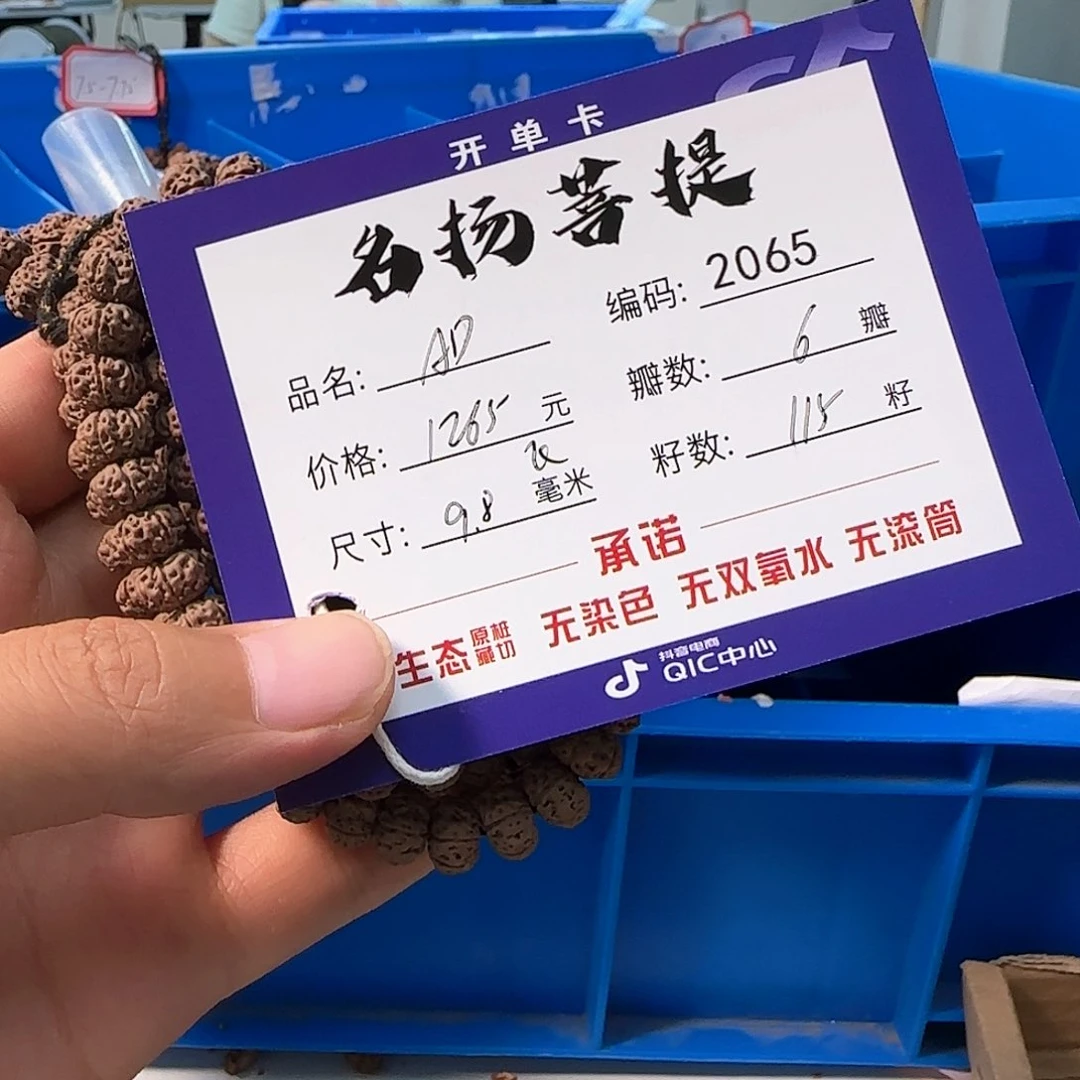 7.5-7.75
开单卡
名扬菩提
编码: 2065
品名: AD
瓣数: 6 瓣
价格: 1265 元
籽数: 115 籽
尺寸: 9.8 毫米
承诺
生态 原桩藏切 无染色 无双氧水 无滚筒
抖音电商
QIC中心